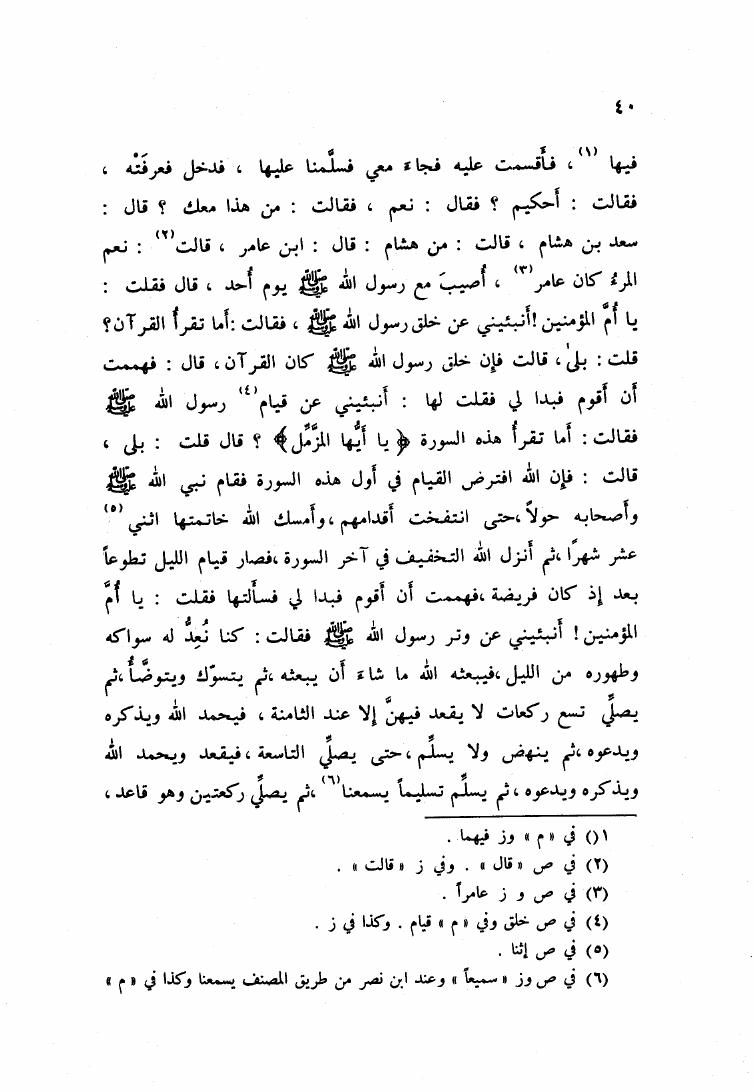 ٤٠
فيها (١) ، فأَقسمت عليه فجاءَ معي فسلَّمنا عليها ، فدخل فعرفَتْه ،
فقالت : أَحكيم ؟ فقال : نعم ، فقالت : من هذا معك ؟ قال :
سعد بن هشام ، قالت : من هشام : قال : ابن عامر ، قالت(٢) : نعم
المرءُ كان عامر(٣) ، أُصيبَ مع رسول الله ﷺ يوم أُحد ، قال فقلت :
يا أُمَّ المؤمنين !أَنبئيني عن خلق رسول الله ﷺ ، فقالت :أَما تقرأُ القرآن؟
قلت : بلىٰ ، قالت فإِن خلق رسول الله ﷺ كان القرآن، قال : فهممت
أَن أَقوم فبدا لي فقلت لها : أَنبئيني عن قيام(٤) رسول الله ﷺ
فقالت : أَما تقرأُ هذه السورة ﴿ يا أَيُّها المزَّمِّل ﴾ ؟ قال قلت : بلى ،
قالت : فإِن الله افترض القيام في أَول هذه السورة فقام نبي الله ﷺ
وأَصحابه حولاً ،حتى انتفخت أَقدامهم ،وأَمسك الله خاتمتها اثني(٥)
عشر شهرًا ،ثم أَنزل الله التخفيف في آخر السورة ،فصار قيام الليل تطوعاً
بعد إِذ كان فريضة ،فهممت أَن أَقوم فبدا لي فسأَلتها فقلت : يا أُمَّ
المؤمنين ! أَنبئيني عن وتر رسول الله ﷺ فقالت : كنا نُعِدُّ له سواكه
وطهوره من الليل ،فيبعثه الله ما شاءَ أَن يبعثه ،ثم يتسوّك ويتوضَّأُ ،ثم
يصلِّي تسع ركعات لا يقعد فيهنَّ إِلا عند الثامنة ، فيحمد الله ويذكره
ويدعوه ،ثم ينهض ولا يسلِّم ،حتى يصلِّي التاسعة ،فيقعد ويحمد الله
ويذكره ويدعوه ،ثم يسلِّم تسليماً يسمعنا(٦) ،ثم يصلِّي ركعتين وهو قاعد ،
١() في « م » وز فيهما .
(٢) في ص « قال » . وفي ز « قالت » .
(٣) في ص و ز عامراً .
(٤) في ص خلق وفي « م » قيام . وكذا في ز .
(٥) في ص إثنا .
(٦) في ص وز « سميعاً » وعند ابن نصر من طريق المصنف يسمعنا وكذا في « م »